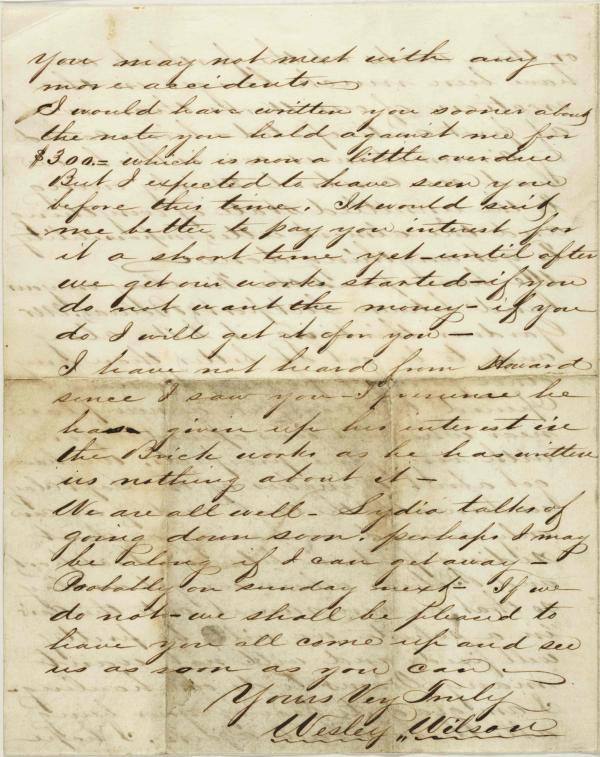 you may not meet with any
more accidents—
I would have written you sooner about
the note you hold against me for
$300.= which is now a little over due
But I expected to have seen you
before this time. It would suit
me better to pay you interest for
it a short time yet—until after
we get our works started—if you
do not want the money—if you
do I will get it for you—
I have not heard from Howard
since I saw you—I presume he
has given up his interest in
the Brick works as he has written
us nothing about it—
We are all well—Lydia talks of
going down soon. perhaps I may
be along if I can get away—
Probably on sunday next—If we
do not—we shall be pleased to
have you all come up and see
us as soon as you can—
Yours Very Truly
Wesley Wilson